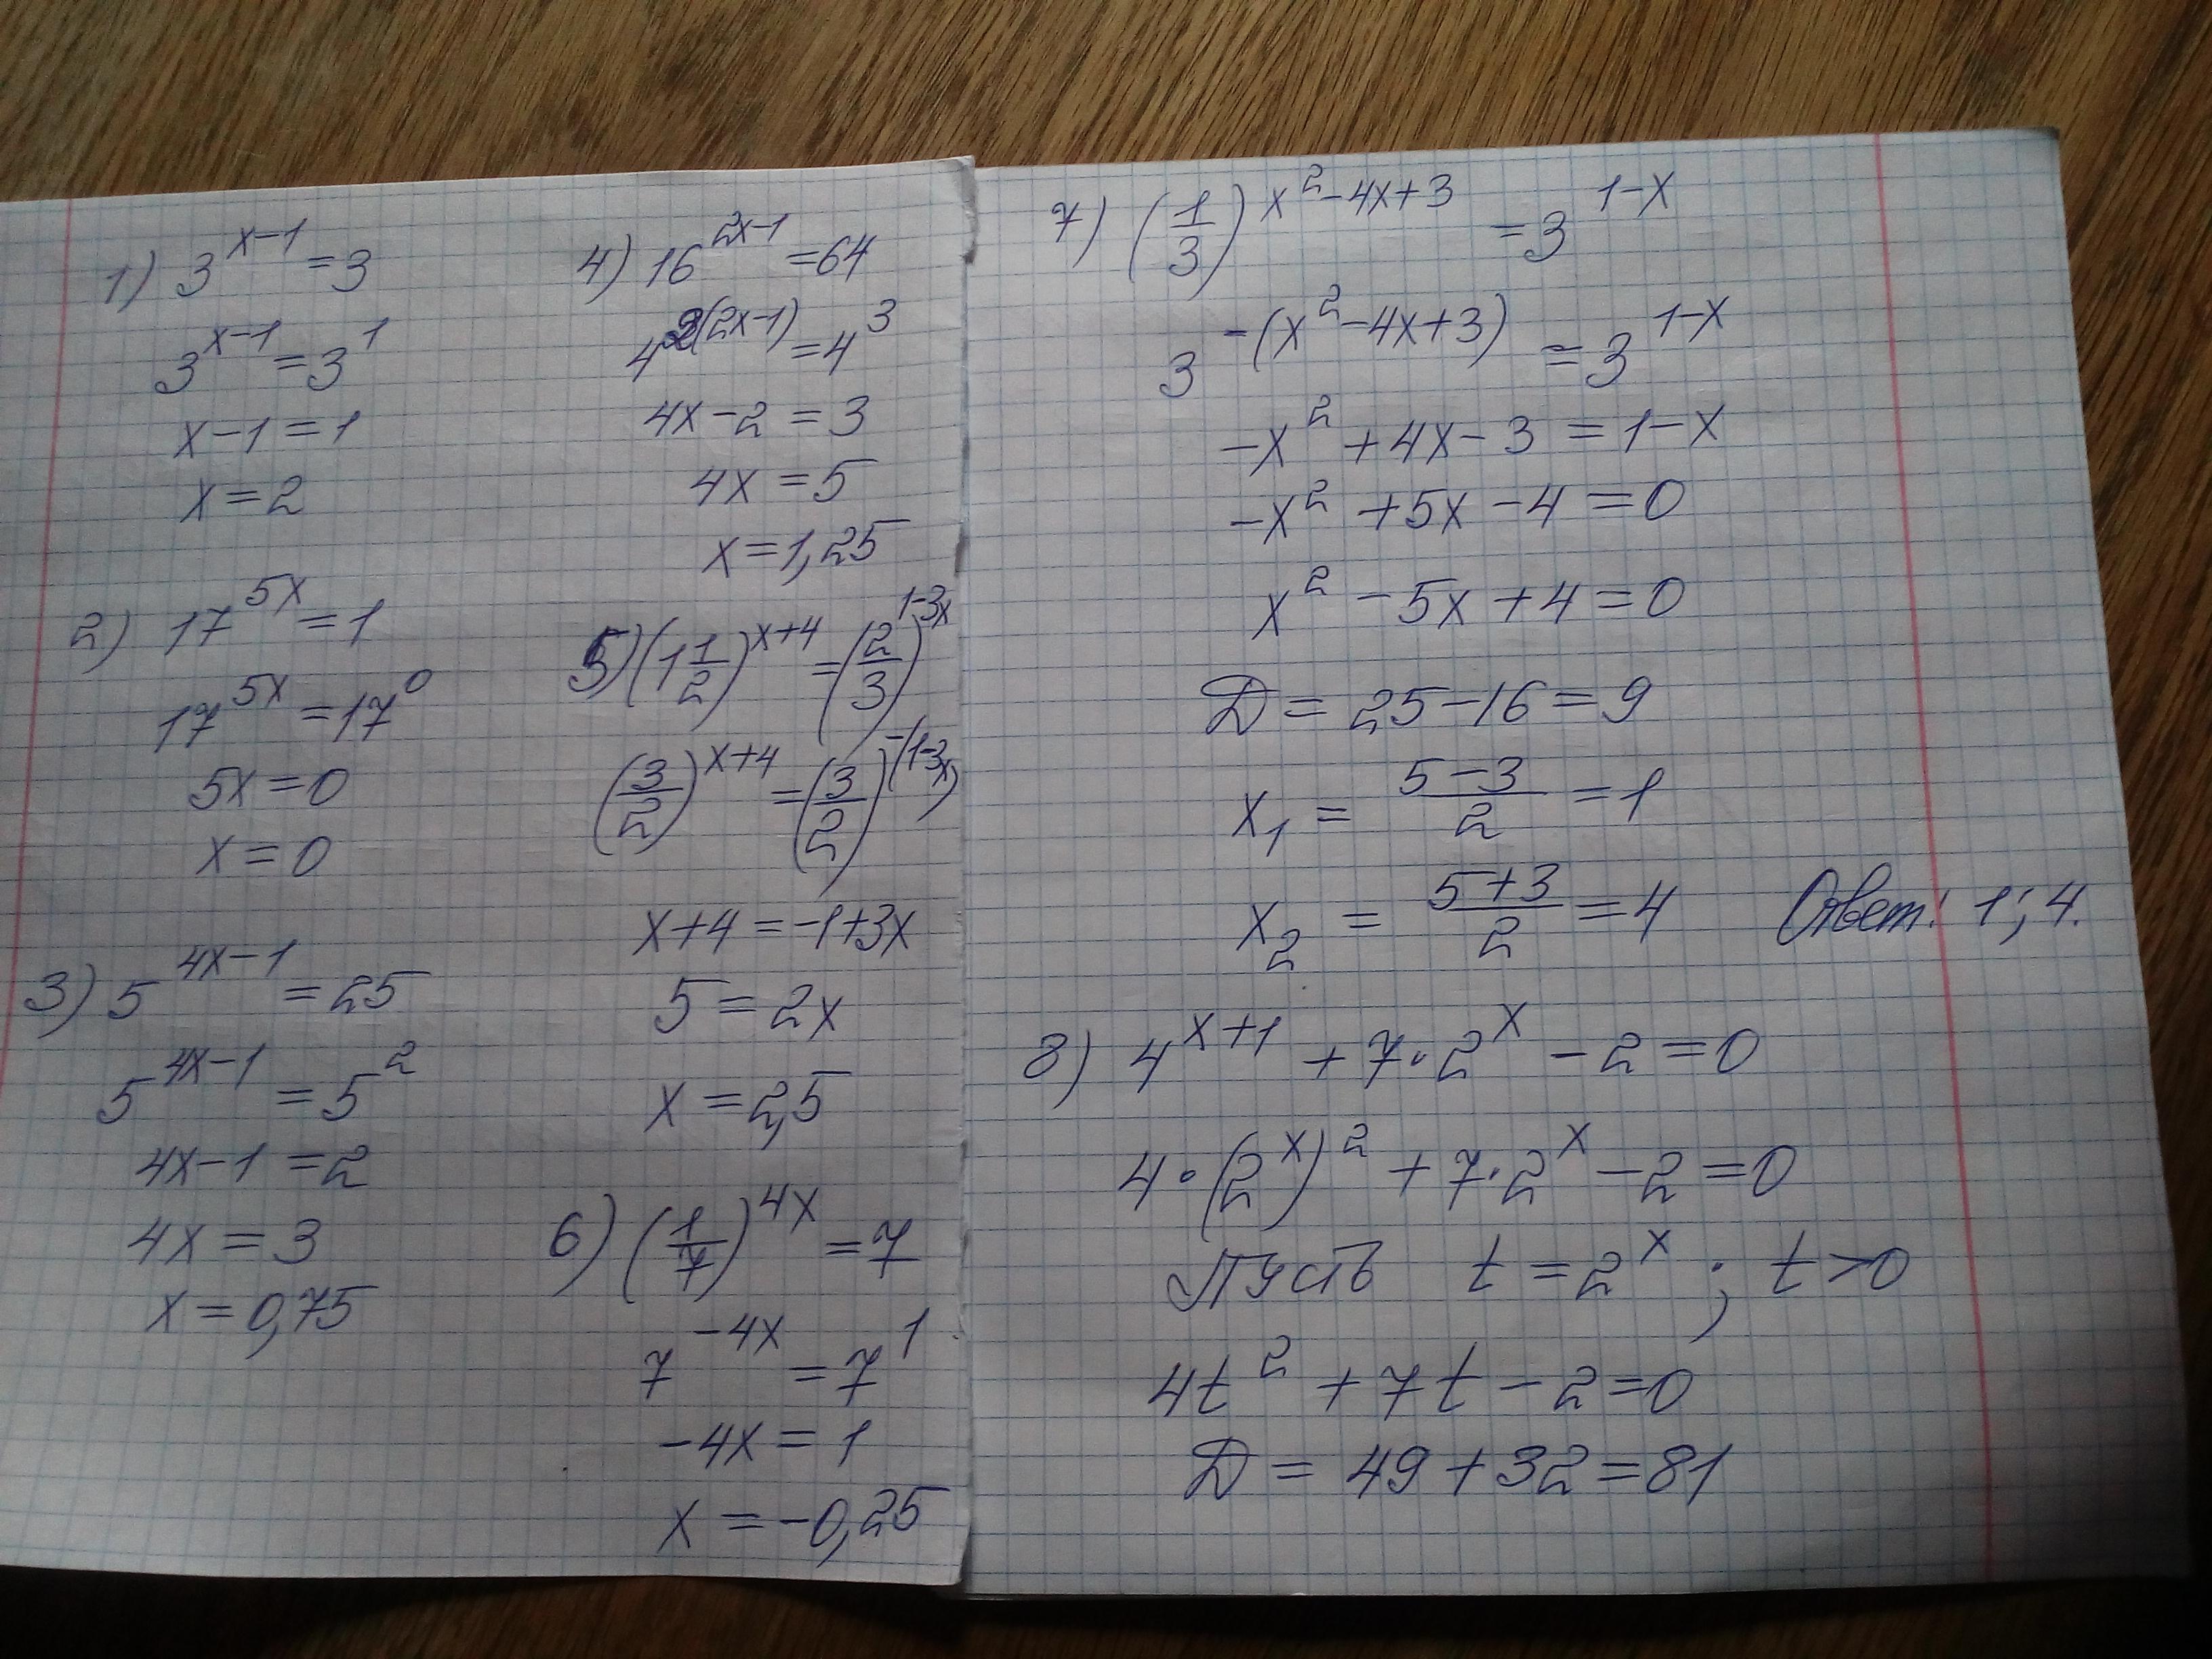 1) 3^{x-1} = 3
3^{x-1} = 3^1
x-1 = 1
x = 2
2) 17^{5x} = 1
17^{5x} = 17^0
5x = 0
x = 0
3) 5^{4x-1} = 25
5^{4x-1} = 5^2
4x-1 = 2
4x = 3
x = 0,75
4) 16^{2x-1} = 64
4^{2(2x-1)} = 4^3
4x-2 = 3
4x = 5
x = 1,25
5) (1\frac{1}{2})^{x+4} = (\frac{2}{3})^{1-3x}
(\frac{3}{2})^{x+4} = (\frac{3}{2})^{-(1-3x)}
x+4 = -1+3x
5 = 2x
x = 2,5
6) (\frac{1}{7})^{4x} = 7
7^{-4x} = 7^1
-4x = 1
x = -0,25
7) (\frac{1}{3})^{x^2-4x+3} = 3^{1-x}
3^{-(x^2-4x+3)} = 3^{1-x}
-x^2+4x-3 = 1-x
-x^2+5x-4 = 0
x^2-5x+4 = 0
Д = 25-16 = 9
x_1 = \frac{5-3}{2} = 1
x_2 = \frac{5+3}{2} = 4 Ответ: 1; 4.
8) 4^{x+1} + 7·2^x - 2 = 0
4·(2^x)^2 + 7·2^x - 2 = 0
Пусть t = 2^x ; t > 0
4t^2 + 7t - 2 = 0
Д = 49 + 32 = 81